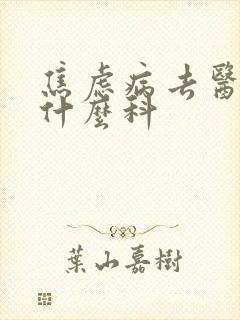 焦虑病去醫
什麼科
葉山嘉樹